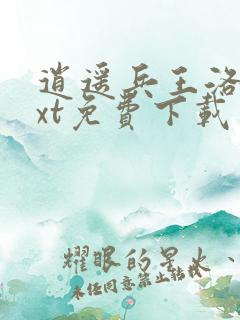 逍遥兵王洛
xt免费下载
耀眼的星火、
未经同意禁止转载